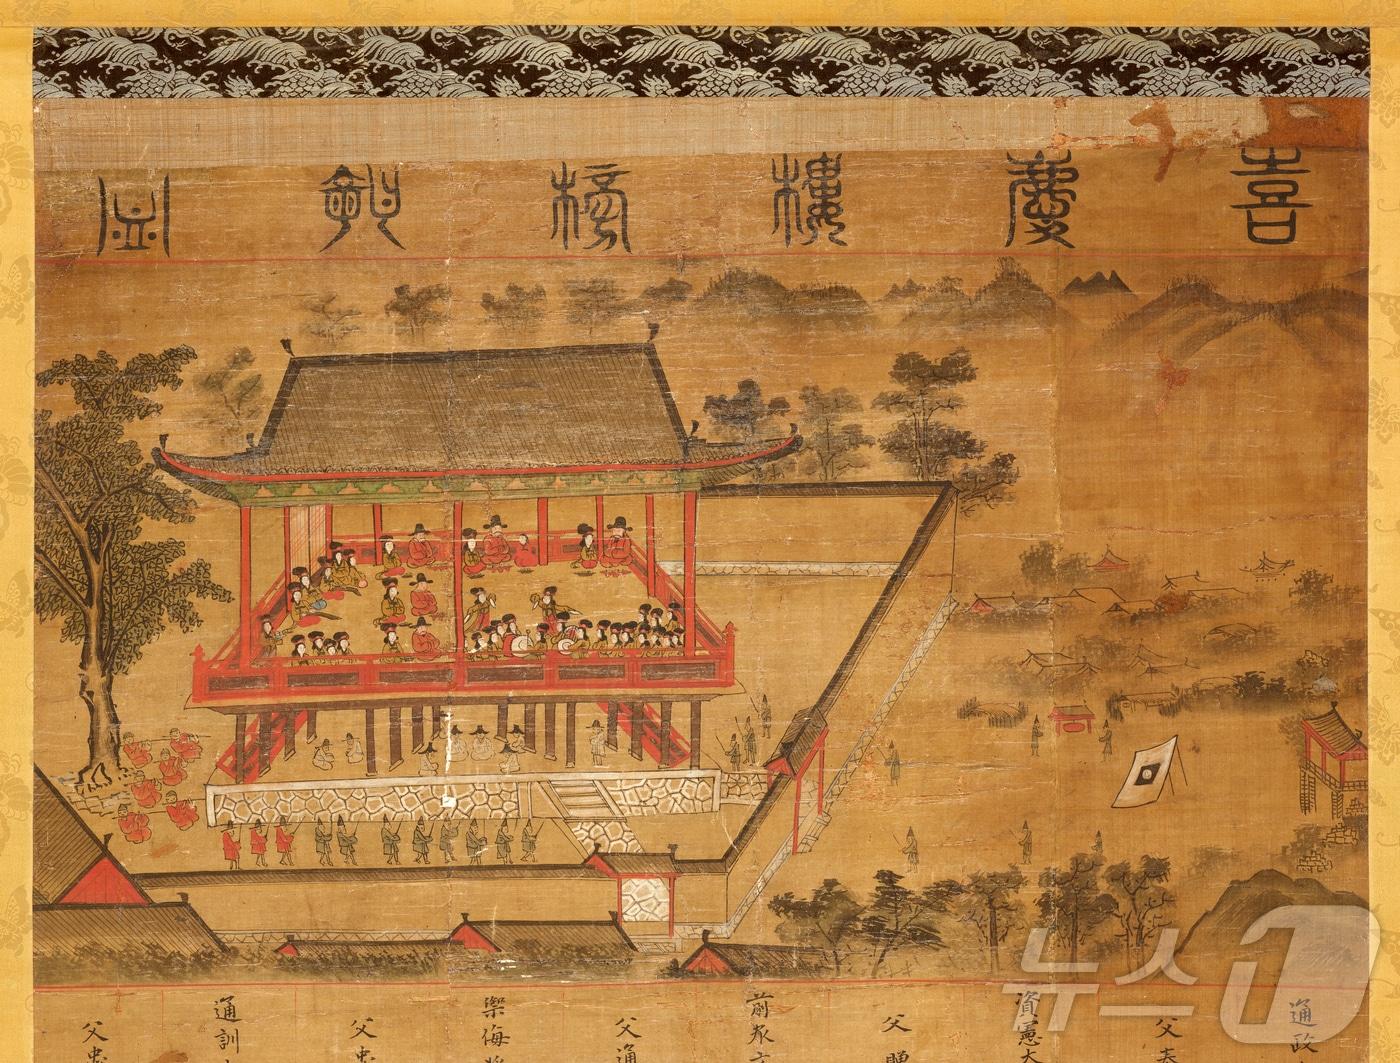 喜慶樓榜會圖
通政
父
資憲大
父贈
前
父通
禦侮將
父忠
通訓
父忠
뉴스1